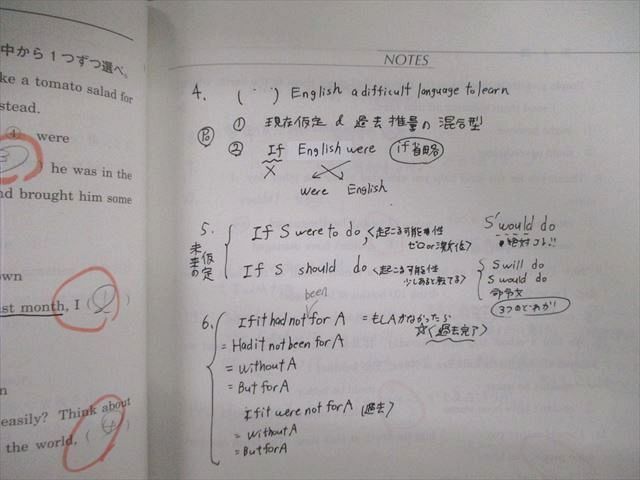 中から1つずつ選べ。
ke a tomato salad for
stead.
④ were
3 ) he was in the
nd brought him some
own
ast month, I (
n
easily? Think about
the world, ( 4 )
NOTES
4. ( ) English a difficult language to learn
① 現在仮定 & 過去推量の混合型
② If English were if省略
×
were English
5. 未来の仮定
If S were to do, <起こる可能性
ゼロor
S' would do
絶対コレ!!
If S should do <起こる可能性
少しあると
S will do
S would do
命令文
3つの
been
6. If it had not for A = もしAがなかったら
☆<過去完了>
= Had it not been for A
= Without A
= But for A
If it were not for A (過去)
= Without A
= But for A